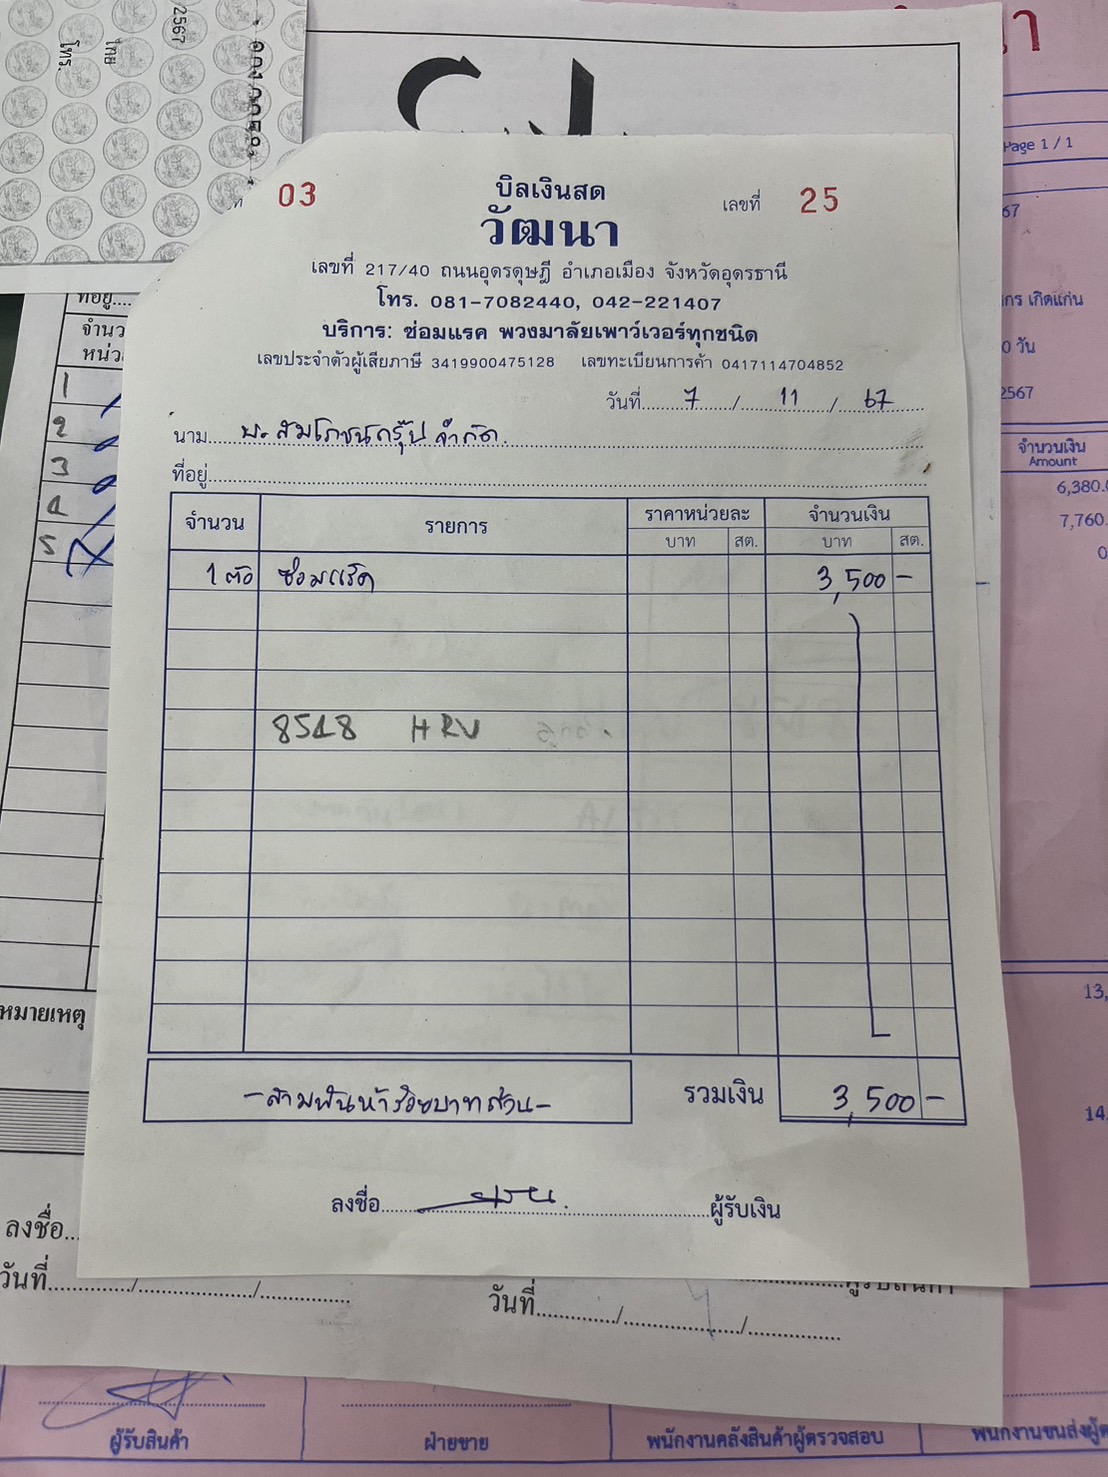 /2567
ไทย
โทร.
03
บิลเงินสด
เลขที่ 25
วัฒนา
เลขที่ 217/40 ถนนอุดรดุษฎี อำเภอเมือง จังหวัดอุดรธานี
โทร. 081-7082440, 042-221407
บริการ: ซ่อมแรค พวงมาลัยเพาว์เวอร์ทุกชนิด
เลขประจำตัวผู้เสียภาษี 3419900475128 เลขทะเบียนการค้า 0417114704852
วันที่ 7 / 11 / 67
นาม บจ. สัมโภชน์กรุ๊ป จำกัด
ที่อยู่
จำนวน รายการ ราคาหน่วยละ จำนวนเงิน
บาท สต. บาท สต.
1 ตัว ซ่อมแร็ค 3,500 -
8518 HRV
- สามพันห้าร้อยบาทถ้วน - รวมเงิน 3,500 -
ลงชื่อ ผู้รับเงิน
ที่อยู่
จำนว
หน่ว
1
2
3
4
5
หมายเหตุ
ลงชื่อ
วันที่ / /
วันที่ / /
Page 1 / 1
67
กร เกิดแก่น
0 วัน
2567
จำนวนเงิน
Amount
6,380.0
7,760.
0
13,
14,
ผู้รับสินค้า ฝ่ายขาย พนักงานคลังสินค้าผู้ตรวจสอบ พนักงานขนส่งผู้ต